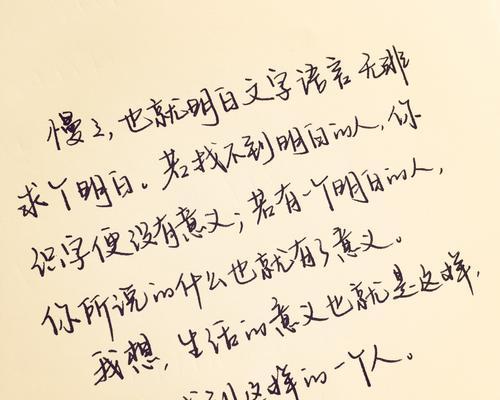 慢々,也就明白文字语言无非
求个明白。若找不到明白的人,你
识字便没有意义;若有一个明白的人,
你所说的什么也就有了意义。
我想,生活的意义也就是这样,
找到这样的一个人。